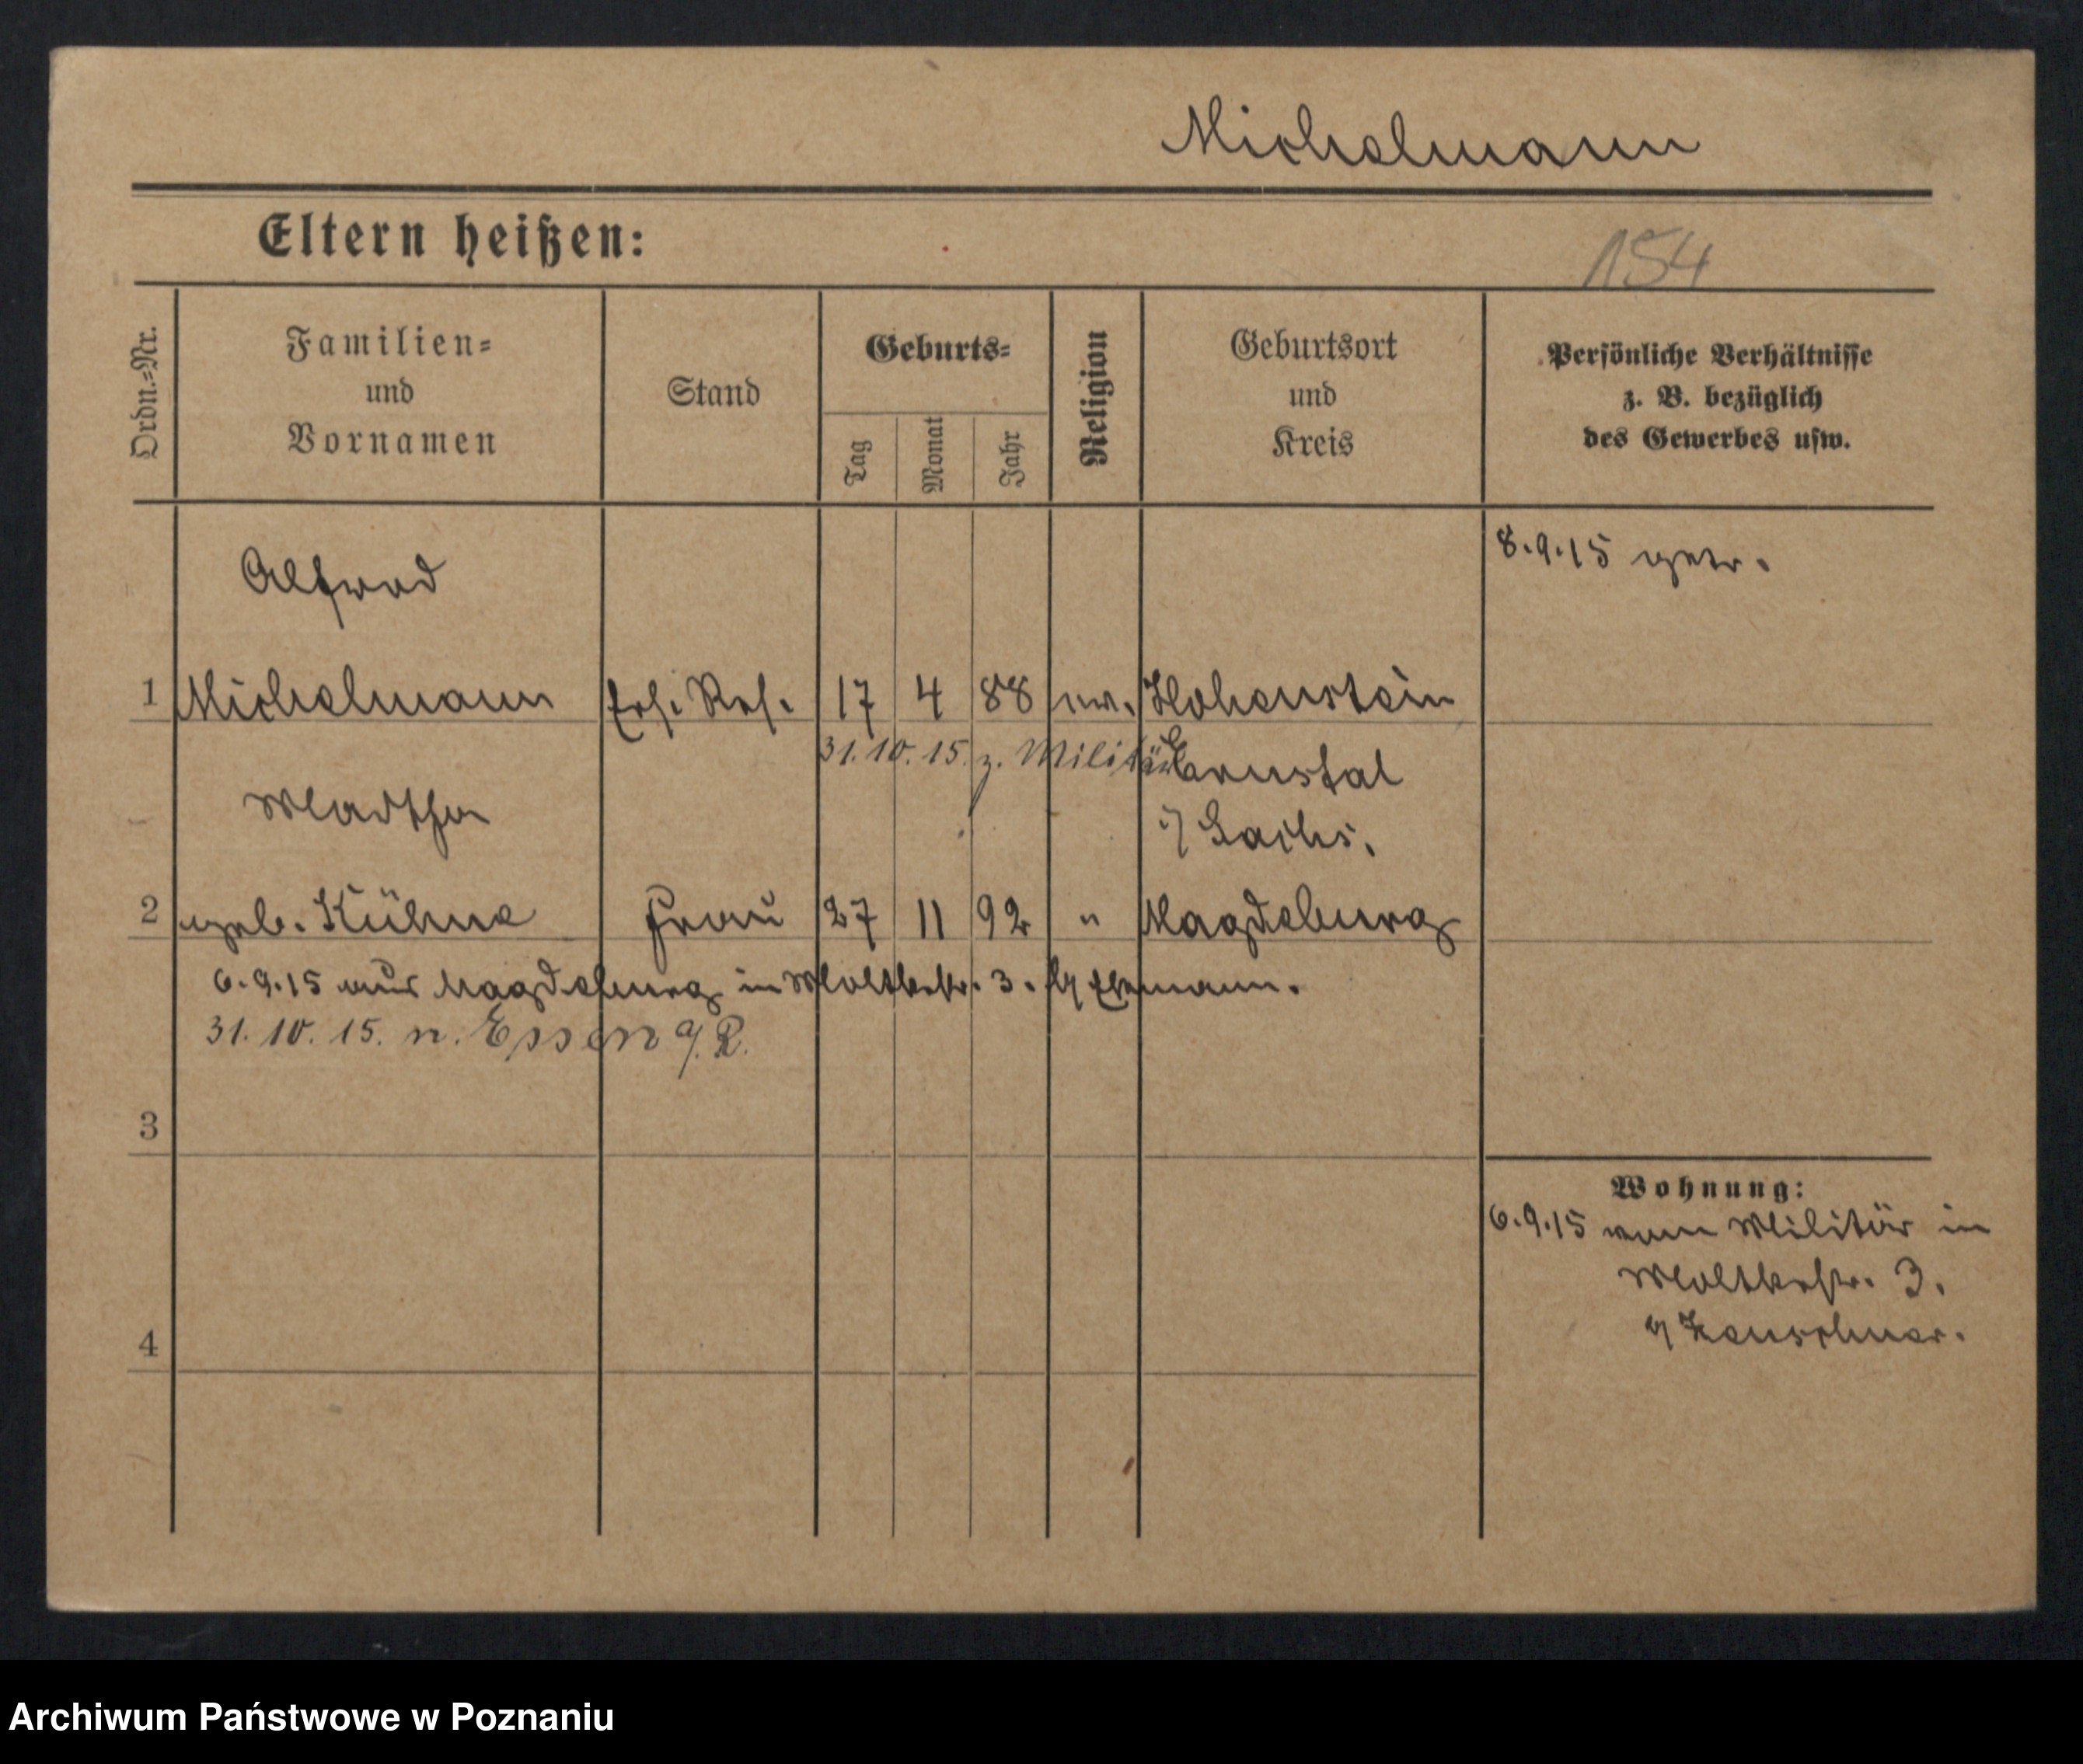 Michelmann
Eltern heißen:
154
Ordn.=Nr.
Familien= und Vornamen
Stand
Geburts=
Tag
Monat
Jahr
Religion
Geburtsort und Kreis
Persönliche Verhältnisse
z. B. bezüglich
des Gewerbes usw.
Alfred
8.9.15 getr.
1 Michelmann Ers. Res. 17 4 88 ev. Hohenstein
31.10.15. z. Militär
Ernstal
i/ Sachs.
Martha
2 geb. Kühne Frau 27 11 92 " Magdeburg
6.9.15 aus Magdeburg in Moltkestr. 3. b/ Ehemann.
31.10.15. n. Essen a/R.
3
Wohnung:
6.9.15 vom Militär in
Moltkestr. 3.
b/
4
Archiwum Państwowe w Poznaniu